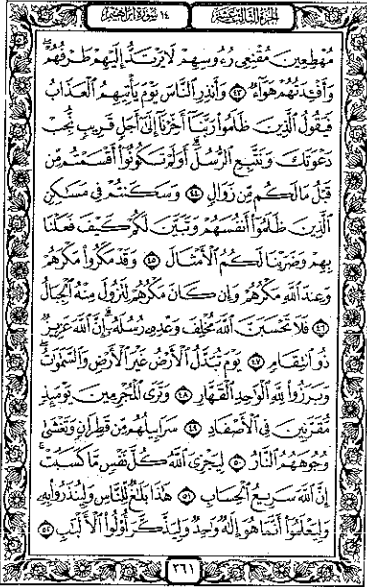 الجزء الثالث عشر
١٤ سورة إبراهيم
مُهْطِعِينَ مُقْنِعِى رُءُوسِهِمْ لَا يَرْتَدُّ إِلَيْهِمْ طَرْفُهُمْ
وَأَفْـِٔدَتُهُمْ هَوَآءٌ ٤٣ وَأَنذِرِ ٱلنَّاسَ يَوْمَ يَأْتِيهِمُ ٱلْعَذَابُ
فَيَقُولُ ٱلَّذِينَ ظَلَمُوا۟ رَبَّنَآ أَخِّرْنَآ إِلَىٰٓ أَجَلٍ قَرِيبٍ نُّجِبْ
دَعْوَتَكَ وَنَتَّبِعِ ٱلرُّسُلَ أَوَلَمْ تَكُونُوٓا۟ أَقْسَمْتُم مِّن
قَبْلُ مَا لَكُم مِّن زَوَالٍ ٤٤ وَسَكَنتُمْ فِى مَسَٰكِنِ
ٱلَّذِينَ ظَلَمُوٓا۟ أَنفُسَهُمْ وَتَبَيَّنَ لَكُمْ كَيْفَ فَعَلْنَا
بِهِمْ وَضَرَبْنَا لَكُمُ ٱلْأَمْثَالَ ٤٥ وَقَدْ مَكَرُوا۟ مَكْرَهُمْ
وَعِندَ ٱللَّهِ مَكْرُهُمْ وَإِن كَانَ مَكْرُهُمْ لِتَزُولَ مِنْهُ ٱلْجِبَالُ
٤٦ فَلَا تَحْسَبَنَّ ٱللَّهَ مُخْلِفَ وَعْدِهِۦ رُسُلَهُۥٓ إِنَّ ٱللَّهَ عَزِيزٌ
ذُو ٱنتِقَامٍ ٤٧ يَوْمَ تُبَدَّلُ ٱلْأَرْضُ غَيْرَ ٱلْأَرْضِ وَٱلسَّمَٰوَٰتُ
وَبَرَزُوا۟ لِلَّهِ ٱلْوَٰحِدِ ٱلْقَهَّارِ ٤٨ وَتَرَى ٱلْمُجْرِمِينَ يَوْمَئِذٍ
مُّقَرَّنِينَ فِى ٱلْأَصْفَادِ ٤٩ سَرَابِيلُهُم مِّن قَطِرَانٍ وَتَغْشَىٰ
وُجُوهَهُمُ ٱلنَّارُ ٥٠ لِيَجْزِىَ ٱللَّهُ كُلَّ نَفْسٍ مَّا كَسَبَتْ
إِنَّ ٱللَّهَ سَرِيعُ ٱلْحِسَابِ ٥١ هَٰذَا بَلَٰغٌ لِّلنَّاسِ وَلِيُنذَرُوا۟ بِهِۦ
وَلِيَعْلَمُوٓا۟ أَنَّمَا هُوَ إِلَٰهٌ وَٰحِدٌ وَلِيَذَّكَّرَ أُو۟لُوا۟ ٱلْأَلْبَٰبِ ٥٢
٢٦١